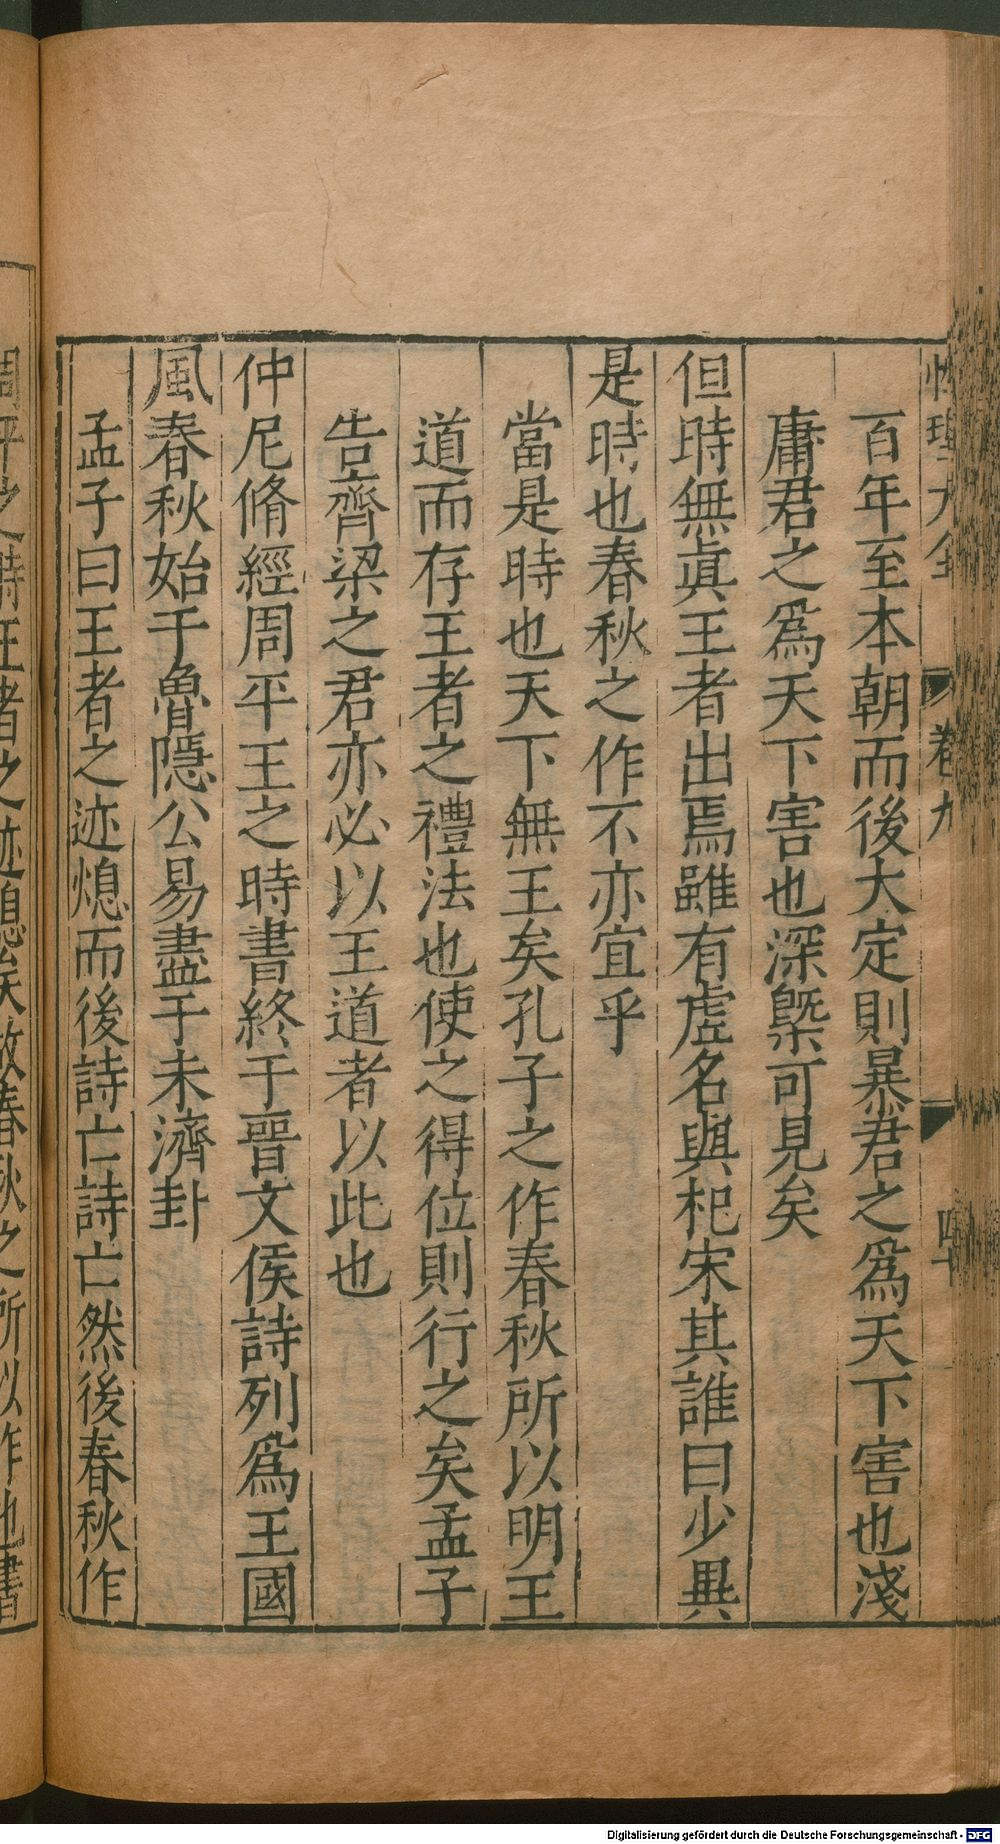 性理大全 卷九 四十
百年至本朝而後大定則暴君之爲天下害也淺
庸君之爲天下害也深槩可見矣
但時無眞王者出焉雖有虛名與杞宋其誰曰少異
是時也春秋之作不亦宜乎
當是時也天下無王矣孔子之作春秋所以明王
道而存王者之禮法也使之得位則行之矣孟子
告齊梁之君亦必以王道者以此也
仲尼脩經周平王之時書終于晉文侯詩列爲王國
風春秋始于魯隱公易盡于未濟卦
孟子曰王者之迹熄而後詩亡詩亡然後春秋作
周平之時王者之迹熄矣故春秋之所以作也書
Digitalisierung gefördert durch die Deutsche Forschungsgemeinschaft - DFG